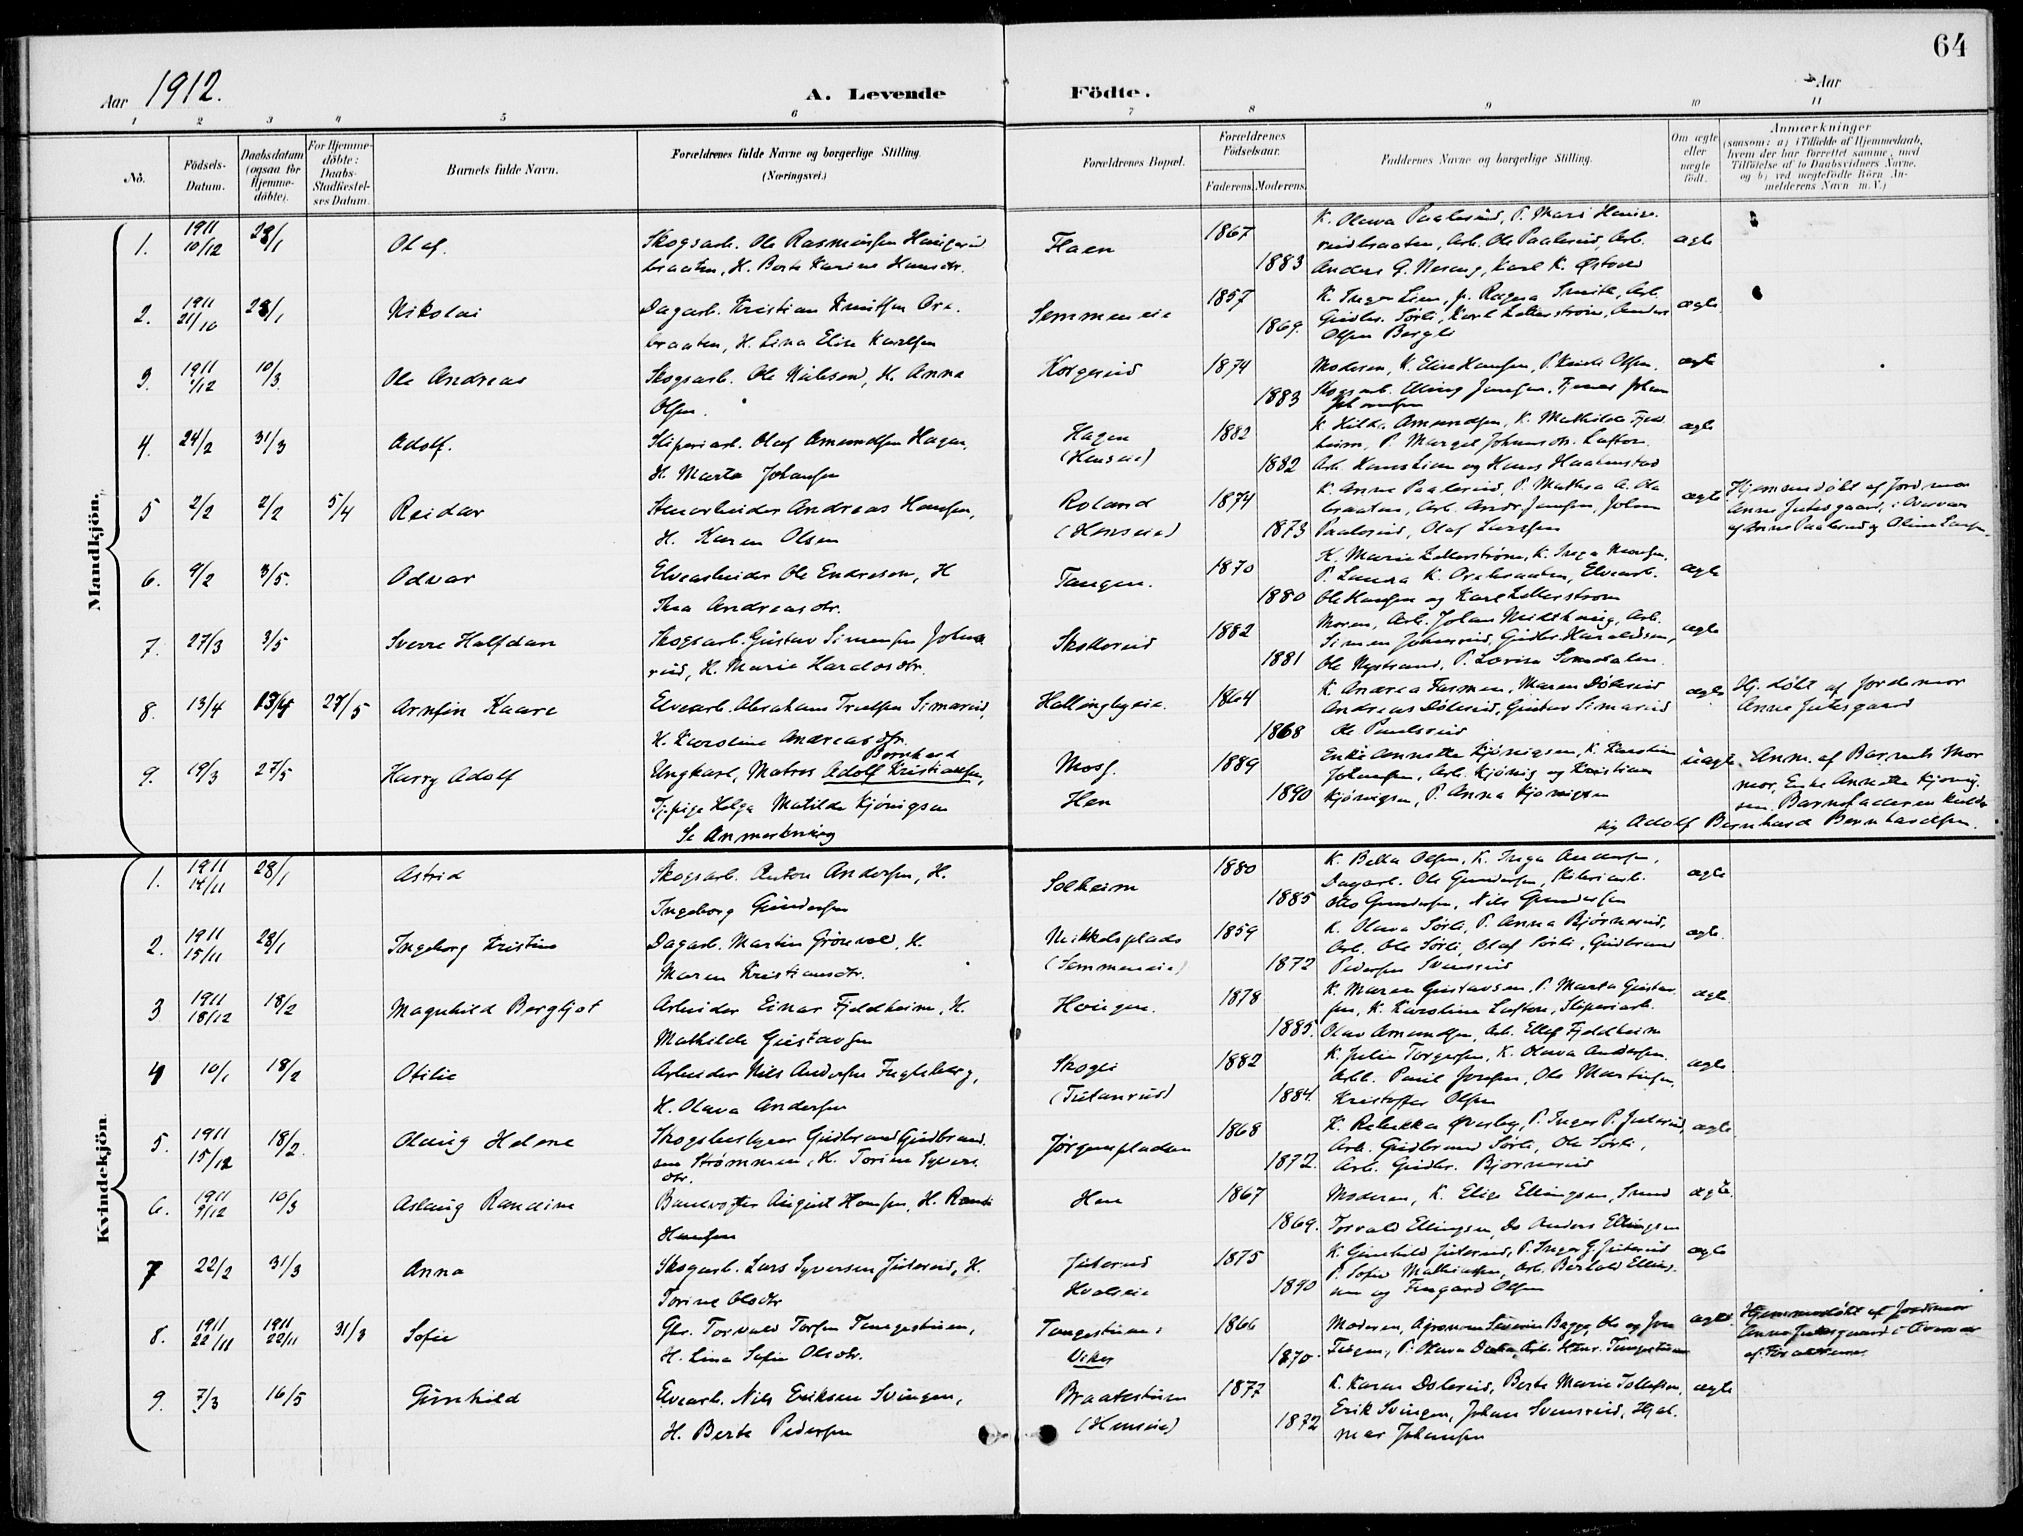 64
Aar 1912.
A. Levende Födte.
Aar
1 2 3 4 5 6 7 8 9 10 11
No.
Födsels-Datum.
Daabsdatum (ogsaa for Hjemme-döbte).
For Hjemme-döbte: Daabs-Stadfæstel-ses Datum.
Barnets fulde Navn.
Forældrenes fulde Navne og borgerlige Stilling. (Næringsvei.)
Forældrenes Bopæl.
Forældrenes Födselsaar.
Faderens. Moderens.
Faddernes Navne og borgerlige Stilling.
Om ægte eller uægte födt.
Anmærkninger
(saasom: a) i Tilfælde af Hjemmedaab, hvem der har forrettet samme, med Tilföielse af to Daabsvidners Navne, og b) ved uægtefödte Börn An-melderens Navn m. V.)
Mandkjön.
1. 1911 10/12 28/1 Olaf. Skogsarb. Ole Rasmussen Haugerud
braaten, H. Berte Karine Hansdtr. Flaen 1867 1883
K. Olava Paalerud, P. Mari Hauge-
rudbraaten, Arb. Ole Paalerud, Arb.
Anders G. Neseng, Karl K. Østvold ægte
2. 1911 21/10 28/1 Nikolai Dagarb. Kristian Knutsen Ora-
braaten, H. Lina Elise Karlsen Semmeneie 1857 1869.
K. Inga Lien, P. Ragna Smith, Arb.
Gudbr. Sørli, Karl Zetterstrøm, Anders
Olsen Bergli ægte
3. 1911 1/12 10/3. Ole Andreas Skogsarb. Ole Nielsen, H. Anna
Olsen. Korgerud 1874 1883
Moderen, K. Elise Hansen, P. Olsen.
Skogsarb. Elling Jensen, Johan
Johansen ægte
4. 24/2 31/3 Adolf. Sliperiarb. Olaf Amundsen Hagen,
H. Marta Johansen Hagen (Henseie) 1882 1882
K. Hilda Amundsen, K. Mathilde Fjeld-
heim, P. Margit Johansdtr. Lufton.
Arb. Hans Lien og Hans Haakenstad ægte
5 2/2 2/2 5/4 Reidar Stenarbeider Andreas Hansen,
H. Karen Olsen Roland (Henseie) 1874 1873
K. Anne Paalerud, P. Mathea A. Ola-
braaten, Arb. Andr. Jensen, Johan
Paalerud, Olaf Larsen ægte
Hjemmedøbt af Jordmor
Anne Julsgaard, i Overvær
af Anne Paalerud og Oline Larsen
6. 9/2 3/5. Odvar Elvearbeider Ole Endresen, H
Thea Andreasdtr. Tangen. 1870 1880
K. Marie Zetterstrøm, K. Inga Hansen,
P. Laura K. Orebraaten, Elvearb.
Ole Hansen og Karl Zetterstrøm ægte
7. 27/3 3/5 Sverre Halfdan Skogsarb. Gustav Simensen Johns-
rud, H. Marie Haraldsdtr. Skollerud 1882 1881
Moren, Arb. Johan Midthaug, Arb.
Simen Johnsrud, Gudbr. Haraldsen,
Ole Nystrand, P. Lovise Somdalen. ægte
8. 13/4 13/4 27/5 Arnfin Kaare Elvearb. Abraham Truelsen Simarud,
H. Karoline Andreasdtr. Hallingbyeie. 1864 1868
K. Andrea Furmen, Maren Dølerud
Andreas Dølerud, Gustav Simarud
Ole Paulsrud ægte
Hj. døbt af Jordemor
Anne Julsgaard
9. 19/3 27/5 Harry Adolf Ungkarl, Matros Adolf Bernhard Kristiansen,
Tj.pige Helga Matilde Kjønigsen
Se Anmerkning Moss. Hen 1889 1890
Enke Annette Kjønigsen, K. Karoline
Johansen, Arb. Kjønig og Kristian
Kjønigsen, P. Anna Kjønigsen uægte
Anm. af Barnets Mor
mor, Enke Annette Kjønig-
sen. Barnefaderen kalder
sig Adolf Bernhard Bernhardsen.
Kvindekjön
1. 1911 14/11 28/1 Astrid Skogsarb. Anton Andersen, H.
Ingeborg Gundersen Solheim 1880 1885
K. Betta Olsen, K. Inga Andersen,
Dagarb. Ole Gundersen, Sliperiarb.
Otto Gundersen, Nils Gundersen ægte
2. 1911 15/11 28/1 Ingeborg Kristine Dagarb. Martin Grønvold, H.
Maren Kristiansdtr. Nikkelsplads (Semmeneie) 1859 1872
K. Olava Sørli, P. Anna Bjørnerud,
Arb. Ole Sørli, Olaf Sørli, Gudbrand
Pedersen Svensrud ægte.
3 1911 18/12 18/2 Magnhild Bergljot Arbeider Einar Fjeldheim, H.
Mathilde Gustavsen Haugen. 1878 1885.
K. Maren Gustavsen, P. Marta Gustav-
sen, K. Karoline Lufton, Sliperiarb.
Olav Amundsen, Arb. Ellef Fjeldheim ægte
4 10/1 18/2 Otilie Arbeider Nils Andersen Fugleberg,
H. Olava Andersen Skogli (Tutanrud) 1882 1884.
K. Julie Torgersen, K. Olava Andersen.
Arb. Paul Jensen, Ole Martinsen,
Kristoffer Olsen ægte
5. 1911 15/12 18/2. Olaug Helene Skogsbestyrer Gudbrand Gudbrand-
sen Strømmen, H. Torine Syvers-
dtr. Jørgenspladsen 1868 1872.
K. Rebekka Øverby, P. Inger P. Juterud,
Arb. Gudbrand Sørli, Ole Sørli,
Arb. Gudbr. Bjørnerud ægte
6. 1911 9/12 10/3 Aslaug Randine Banevogter August Hansen, H. Randi
Hansen Hen 1867 1869.
Moderen, K. Elise Ellingsen, Smed
Torvald Ellingsen, Do Anders Ellingsen ægte.
7 22/2 31/3 Anna Skogarb. Lars Syversen Juterud, H.
Torine Olsdtr Juterud Hvalseie 1875 1890
K. Gunhild Juterud, P. Inger G. Juterud
P. Sofie Mathiassen, Arb. Bertold Elling-
sen og Fingard Olsen ægte
8. 1911 22/11 1911 22/11 31/3 Sofie Gbr. Torvald Torsen Tangestuen,
H. Lina Sofie Olsdtr. Tangestuen i Viker 1866 1870.
Moderen, Agronom Severin Bagge, Ole og Iver
Tangen, P. Olava Arb. Tangestuen ægte.
Hjemmedøbt af Jordmor
Anne Julsgaard i Overvær
af Forældrene
9. 7/3 16/5 Gunhild Elvearb. Nils Eriksen Svingen,
H. Berte Pedersen Braatestuen (Henseie) 1877 1872
K. Karen Dølerud, Berte Marie Tollefsen,
Erik Svingen, Johan Svensrud, Hjal-
mar Johansen ægte